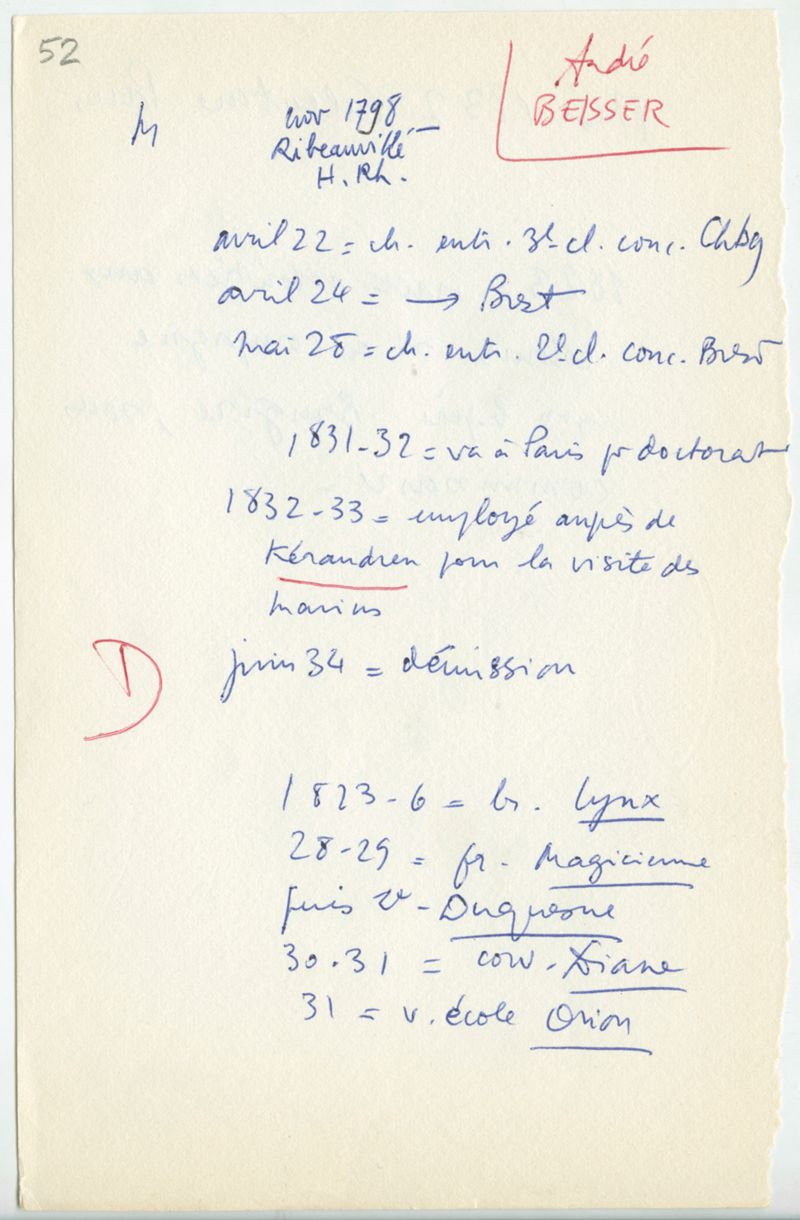 52
André
BEISSER
N
nov 1798
Ribeauvillé
H. Rh.
avril 22 = ch. entr. 3e cl. conc. Chbg
avril 24 = → Brest
mai 28 = ch. entr. 2e cl. conc. Brest
1831-32 = va à Paris pr doctorat
1832-33 = employé auprès de
Kérandren pour la visite des
marins
D
juin 34 = démission
1823-6 = br. Lynx
28-29 = fr. Magicienne
puis v. Duquesne
30-31 = corv. Diane
31 = v. école Orion